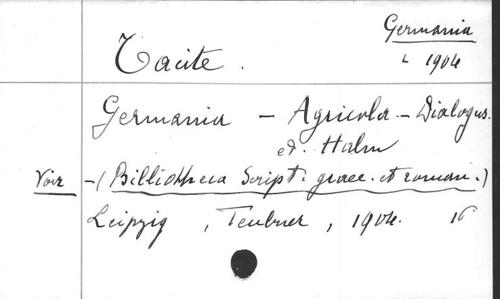 Germania
1904
Tacite.
Germania - Agricola - Dialogus.
ed. Halm
Voir - (Billiotheca Script. graec. et roman.)
Leipzig, Teubner, 1904. 16